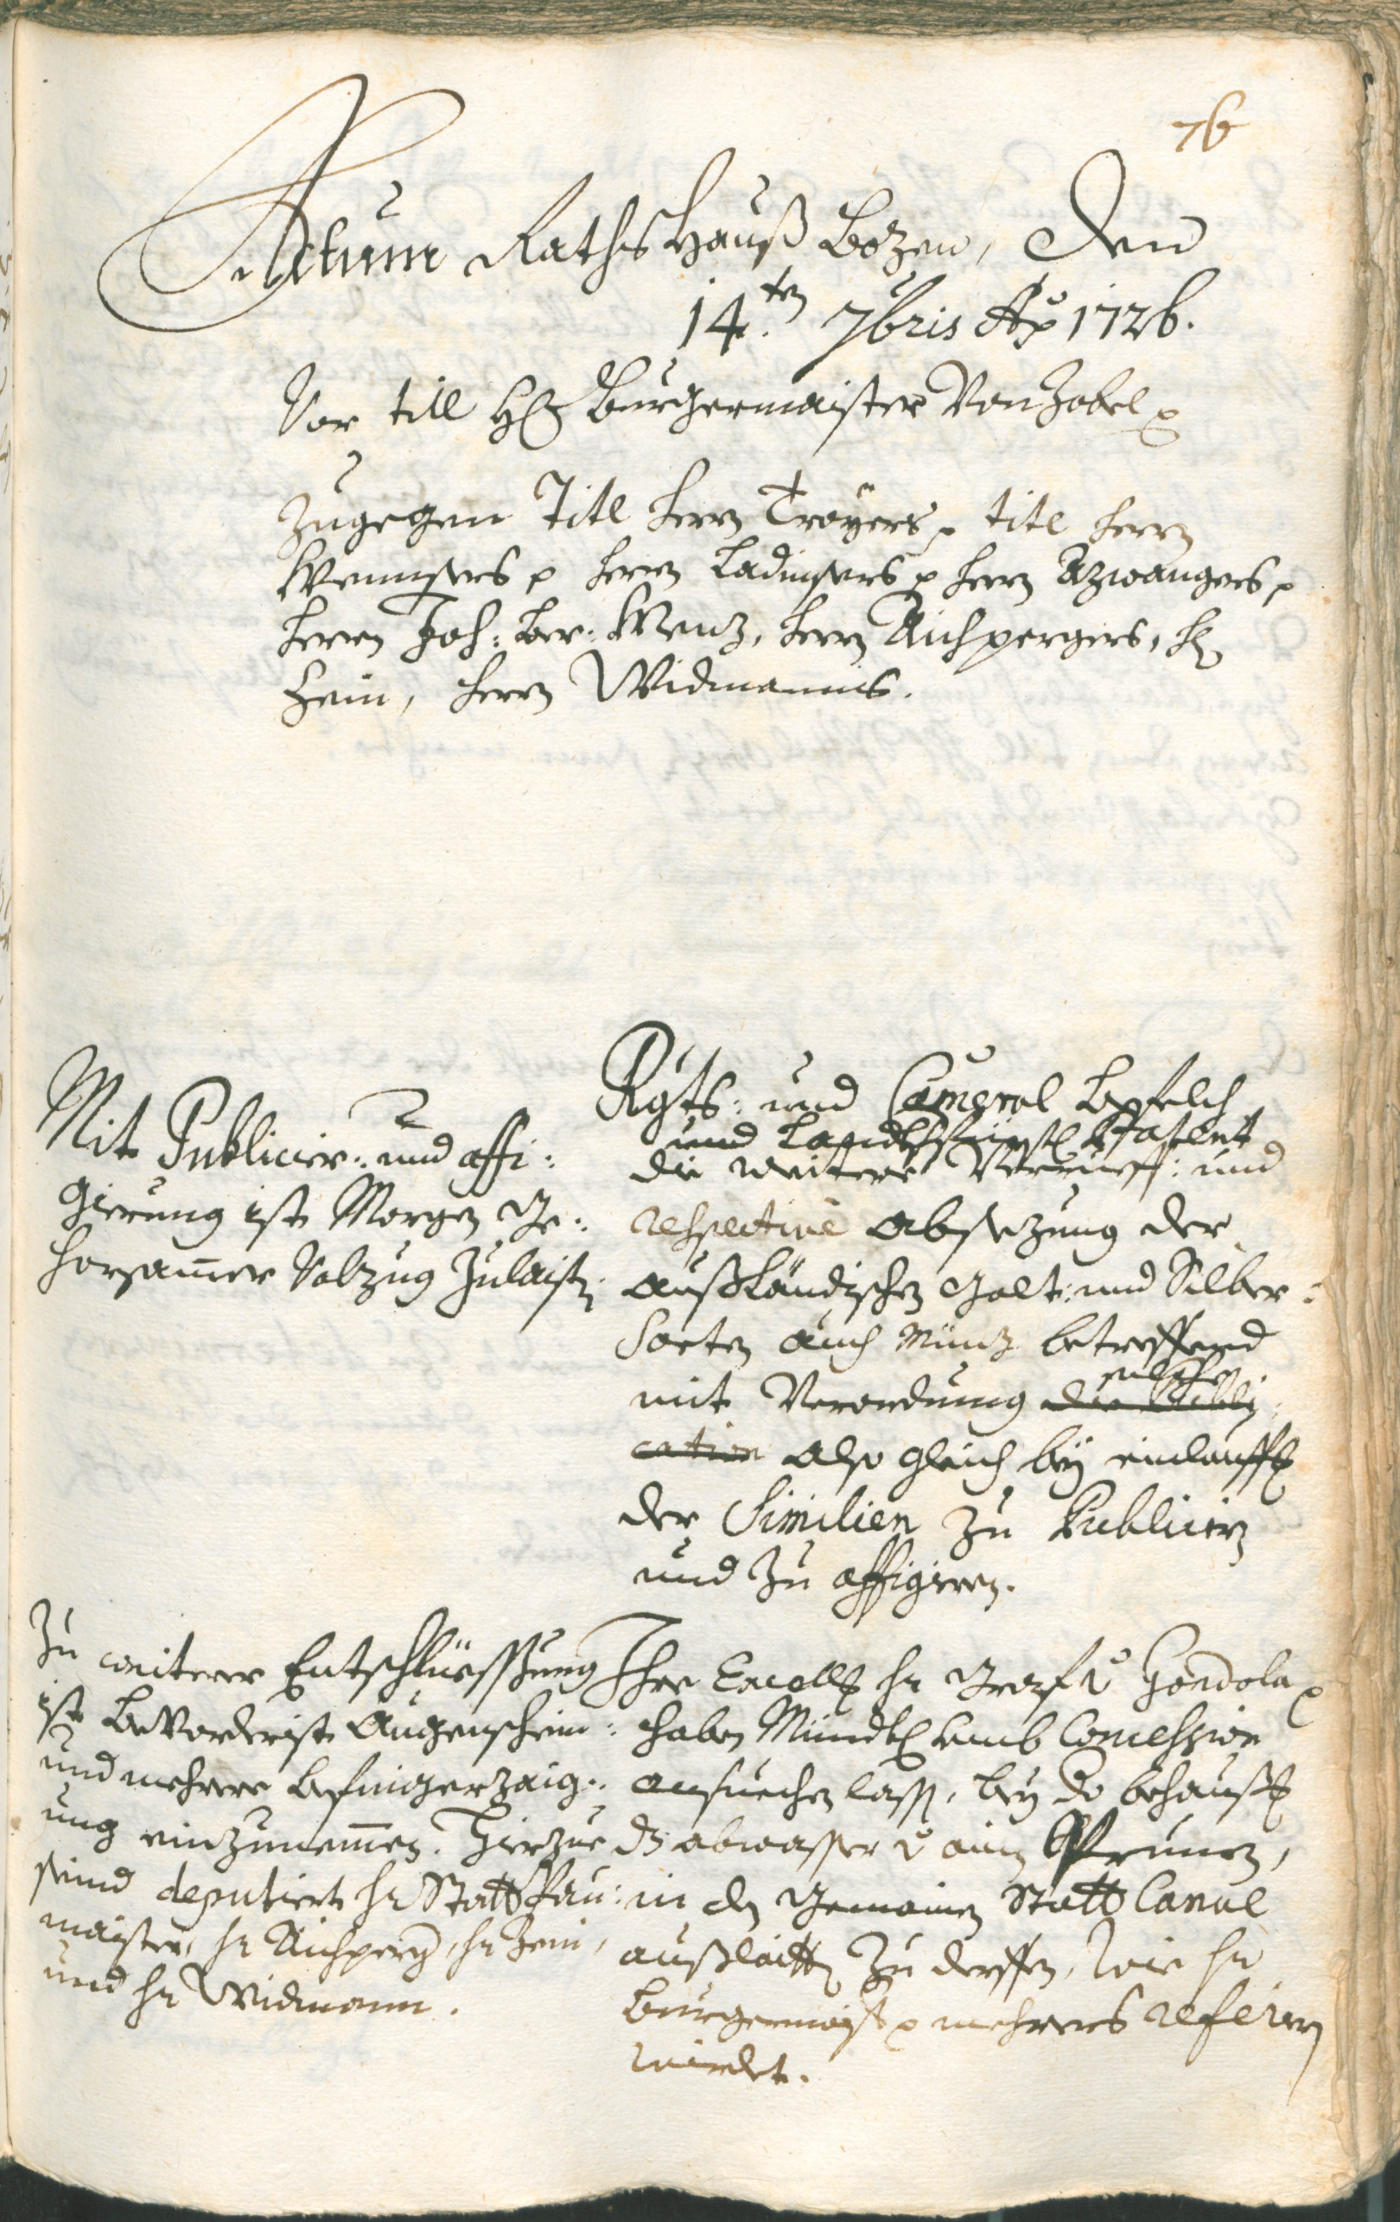 76
Actum Raths Hauß Bozen, den
14.ten 7bris Ao 1726.
Vor titl H Burgermaister Von Zobel p
Zugegen Titl herrn Troyers p titl herrn
Wenisers p herrn Ladinsers p herrn Azwangers p
herrn Joh: Ber: Wenz, herrn Aichpergers, h
Hein, herrn Widmanns.
Mit Publicier: und affi:
gierung ist Morgen Ge:
horsammer Volzug Zulaistn.
Rgts: und Cameral Befelch
und Landtsfürstl Patent
die weitere Verrueff: und
respective absezung der
außländischen Golt: und Silber:
Sorten auch Münz betreffend
mit Verordnung die Publi welche
cation also gleich bey einlauff
der Similien zu Publiciern
und zu affigieren.
Zu weiterer Entschlüessung
ist bevorderist Augenschein:
und mehrere befingerzaig:
ung einzunemmen. Hierzue
seind deputiert hr Statt Pau:
maister, hr Aichperg, hr Hein,
und hr Widmann.
Ihr Excell hr Graf v Gondola p
haben Mündtl umb Concession
ansuechen lassen, bey do behaus
dz abwasser v ain Prunen,
in den Gemainen Statt Canal
außlaitten zu derffen, wie hr
Burgermaist p mehrers referieren
wirdet.